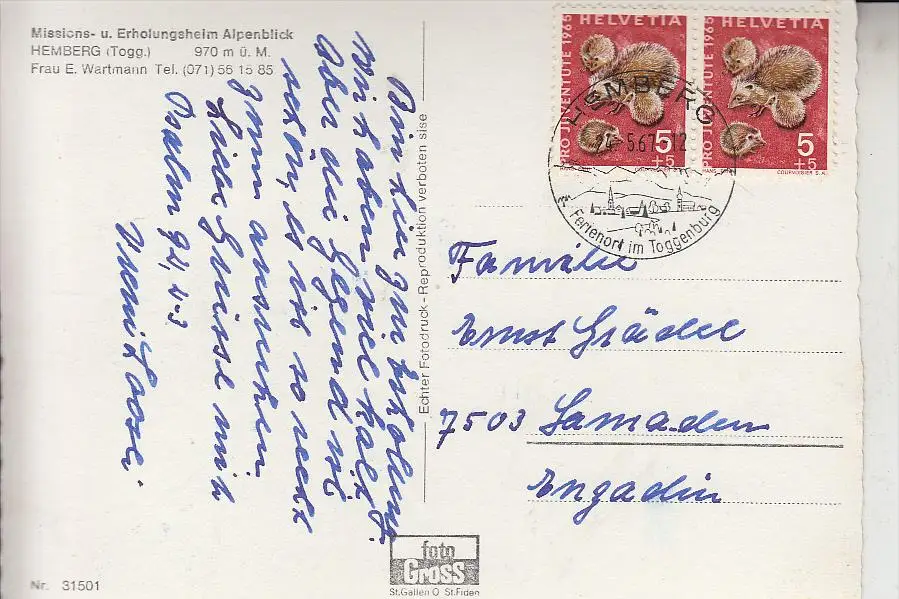 Missions- u. Erholungsheim Alpenblick
HEMBERG (Togg.) 970 m ü. M.
Frau E. Wartmann Tel. (071) 55 15 85
Bin hier zur Erholung.
Wir haben viel kalt
aber die Gegend ist
schön, es ist so
Liebe Grüsse mit
Psalm 94, 1-3
Echter Fotodruck - Reproduktion verboten
HELVETIA
PRO JUVENTUTE 1965
5
+5
HELVETIA
PRO JUVENTUTE 1965
5
+5
COURVOISIER S.A.
HEMBERG
24.-5.67-12
Ferienort im Toggenburg
Familie
Ernst Grädel
7503 Samaden
Engadin
foto
Gross
St.Gallen O St.Fiden
Nr. 31501